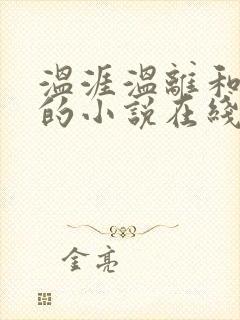 温涯温離和
的小说在线
金亮